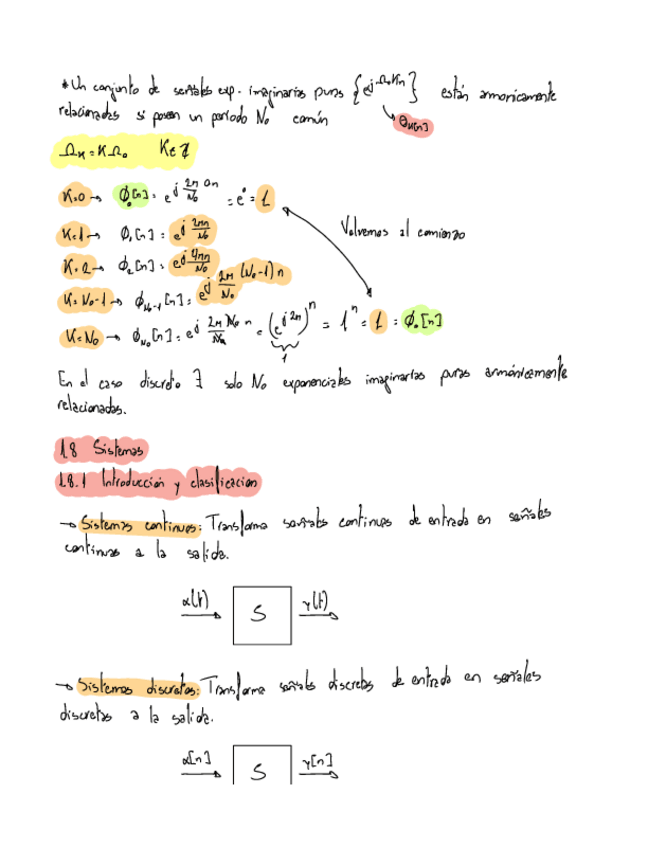 * Un conjunto de señales exp. imaginarias puras {e^{jΩ_K n}} están armonicamente
relacionadas si poseen un período N₀ común
Φ_K[n]
Ω_K = KΩ₀ K ∈ Z
K=0 → Φ₀[n] = e^{j 2π/N₀ 0n} = e⁰ = 1
K=1 → Φ₁[n] = e^{j 2πn/N₀}
Volvemos al comienzo
K=2 → Φ₂[n] = e^{j 4πn/N₀}
K=N₀-1 → Φ_{N₀-1}[n] = e^{j 2π/N₀ (N₀-1)n}
K=N₀ → Φ_{N₀}[n] = e^{j 2π/N₀ N₀ n} = (e^{j2π})^n = 1^n = 1 = Φ₀[n]
1
En el caso discreto ∃ solo N₀ exponenciales imaginarias puras armónicamente
relacionadas.
1.8 Sistemas
1.8.1 Introducción y clasificacion
→ Sistemas continuos: Transforma señales continuas de entrada en señales
continuas a la salida.
x(t) S y(t)
→ Sistemas discretos: Transforma señales discretas de entrada en señales
discretas a la salida.
x[n] S y[n]